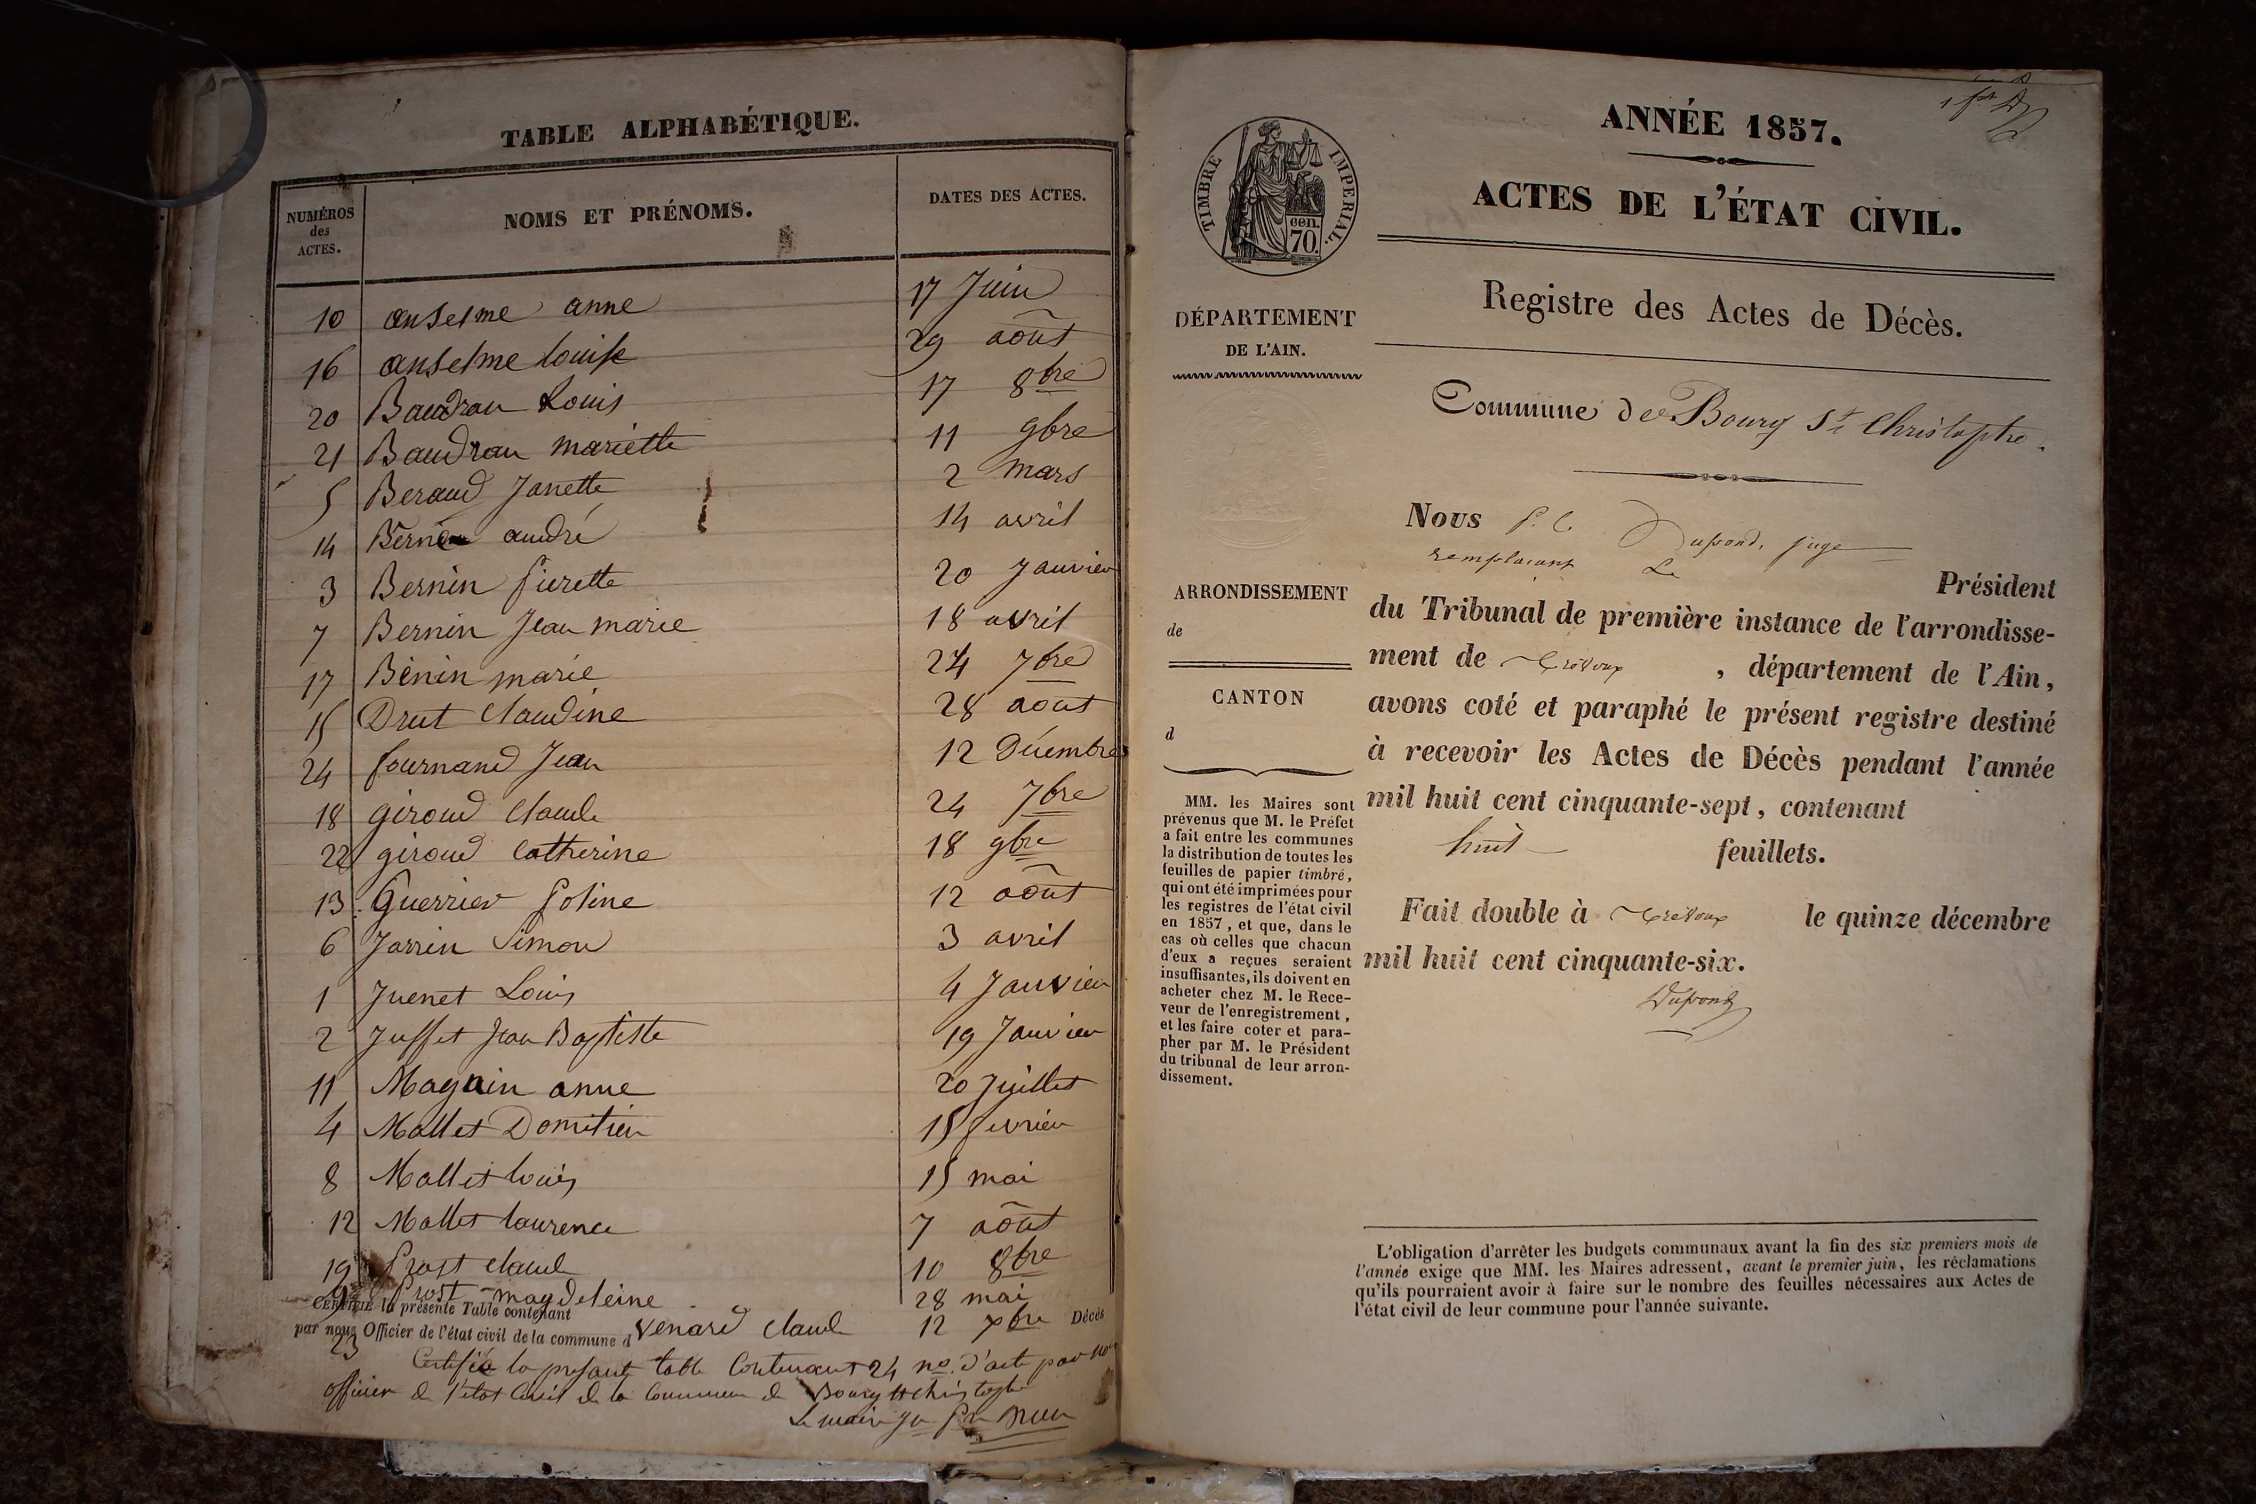 TABLE ALPHABÉTIQUE.
NUMÉROS des ACTES. NOMS ET PRÉNOMS. DATES DES ACTES.
10 anselme anne 17 Juin
16 anselme louise 29 août
20 Baudran Louis 17 8bre
21 Baudran mariette 11 9bre
5 Beraud Janette 2 mars
14 andré 14 avril
3 Bernin pierette 20 Janvier
7 Bernin Jean marie 18 avril
17 Bénin marie 24 7bre
15 Drut Claudine 28 août
24 fournand Jean 12 Décembre
18 giroud Claude 24 7bre
22 giroud Catherine 18 9bre
13 Guerrier poline 12 août
6 Jarrin Simon 3 avril
1 Juenet Louis 4 Janvier
2 Juffet Jean Baptiste 19 Janvier
11 Magnin anne 20 Juillet
4 Mallet Domitien 15 fevrier
8 Mallet louis 15 mai
12 Mallet laurence 7 août
19 Prost claude 10 8bre
9 Prost magdeleine 28 mai
CERTIFIÉ la présente Table contenant
par nous Officier de l'état civil de la commune d Venard claude 12 xbre Décès
23
Certifié la présente table Contenant 24 no. d'acte par nous
officier de l'état Civil de la Commune de Bourg St christophe
Le maire
1er
ANNÉE 1857.
ACTES DE L'ÉTAT CIVIL.
TIMBRE IMPERIAL.
cen. 70.
Registre des Actes de Décès.
DÉPARTEMENT
DE L'AIN.
Commune de Bourg St Christophe.
Nous P. C. Dupond, juge
remplacant Le
Président
du Tribunal de première instance de l'arrondisse-
ment de Trévoux , département de l'Ain,
avons coté et paraphé le présent registre destiné
à recevoir les Actes de Décès pendant l'année
mil huit cent cinquante-sept, contenant
huit feuillets.
Fait double à Trévoux le quinze décembre
mil huit cent cinquante-six.
Dupond
ARRONDISSEMENT
de
CANTON
d
MM. les Maires sont
prévenus que M. le Préfet
a fait entre les communes
la distribution de toutes les
feuilles de papier timbré,
qui ont été imprimées pour
les registres de l'état civil
en 1857, et que, dans le
cas où celles que chacun
d'eux a reçues seraient
insuffisantes, ils doivent en
acheter chez M. le Rece-
veur de l'enregistrement,
et les faire coter et para-
pher par M. le Président
du tribunal de leur arron-
dissement.
L'obligation d'arrêter les budgets communaux avant la fin des six premiers mois de
l'année exige que MM. les Maires adressent, avant le premier juin, les réclamations
qu'ils pourraient avoir à faire sur le nombre des feuilles nécessaires aux Actes de
l'état civil de leur commune pour l'année suivante.